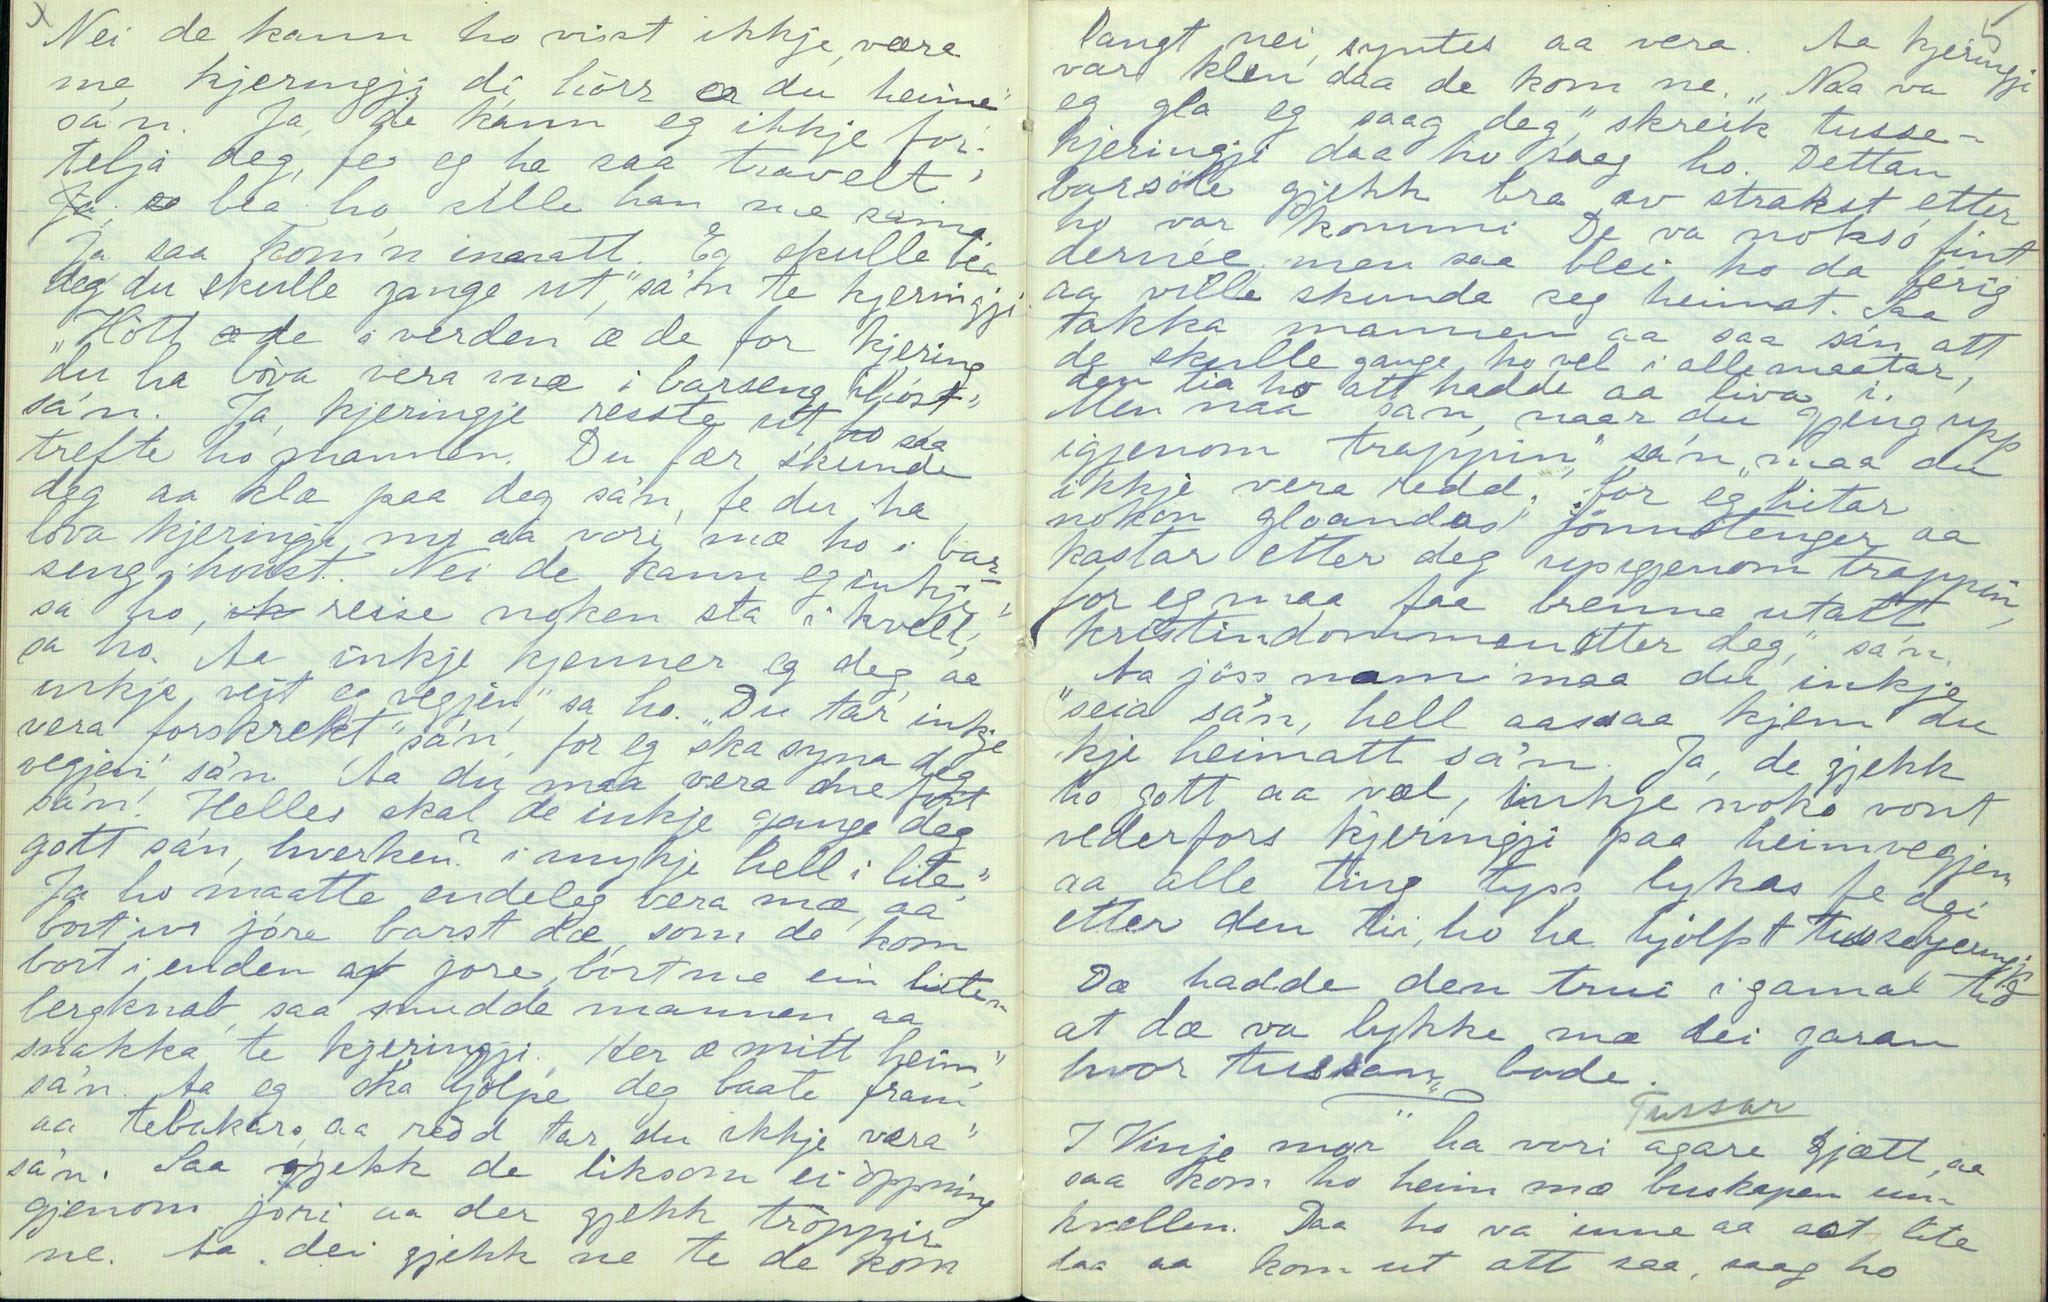 Nei de kann ho visst ikkje være
me kjeringji di hörr er du heime"
sa'n. Ja, de kann eg ikkje for-
telja deg, fe eg ha saa travelt"
bia ho ville han me same
Ja saa kom'n innatt. Eg skulle bia
deg du skulle gange ut," sa'n te kjeringji
"Hött æ de i verden æ de for kjering
du ha lòva vera mæ i barseng i höst"
sa'n. Ja, kjeringje resste ut, saa
trefte ho mannen. Du fær skunde
deg aa klæ paa deg sa'n, fe du ha
lòva kjeringji mi aa vori mæ ho i bar-
seng i houst. Nei de kann eg inkje"
sa ho, resse noken sta i kvell,"
sa ho. Aa inkje kjenner eg deg, aa
inkje veit eg vegjen," sa ho. "Du tar inkje
vera forskrekt" sa'n, for eg ska syna deg
vegjen," sa'n Aa du maa vera me fort
sa'n! Helles skal de inkje gjange deg
gott sa'n, hverken? i mykje hell i lite."
Ja ho maatte endeleg vera mæ, aa
bort ivi jóre barst dæ, som de kom
bort i enden af jore, bort me ein liten
bergknab, saa snudde mannen aa
snakka te kjeringji. Her æ mitt heim,"
sa'n. Aa eg ska hjölpe deg baate fram
aa tebakars, aa redd tar du ikkje væra"
sa'n. Saa gjekk de liksom ei öppning
gjenom jóri aa der gjekk tröppir
ne. Aa dei gjekk ne te de kom
5
langt nei, syntes aa vera. Aa kjeringji
var klen daa de kom ne. "Naa va
eg gla eg saag deg," skreik tusse-
kjeringji daa ho saag ho. Dettan
barsöle gjekk bra av strakst etter
ho var kommi De va noksó fint
dernée, men saa blei ho da færig
aa ville skunda seg heimat. Saa
takka mannen aa saa sa'n att
de skulle gange ho vel i alle maatar,
den tia ho att hadde aa liva i.
Men naa sa'n, naar du gjeng upp
igjenom trappin," sa'n, "maa du
ikkje vera redd, for eg hitar
nokon gloandes jönnstenger aa
kastar etter deg upigjenom trappin,
for eg maa faa brenne utatt
kristindommen etter deg," sa'n.
Aa jöss nam maa du inkje
"seia sa'n, hell aassaa kjem du
kje heimatt sa'n. Ja, de gjekk
ho gott aa væl, inkje noko vont
vederfors kjeringji paa heimvegjen
aa alle ting tyss lykas fe dei
etter den tii, ho ha hjölpt tussekjeringji
Dæ hadde den trui i gamal tid
at dæ va lykke mæ dei garan
hvor tussan bode.
Tussar
I Vinje mor ha vori agare gjætt, aa
saa kom ho heim mæ buskapen um
kvellen. Daa ho va inne aa aat lite
daa aa kom ut att saa, saag ho